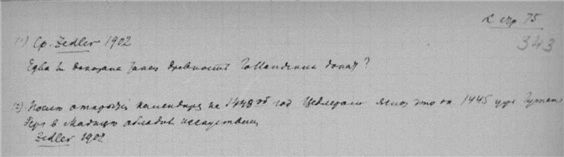 к стр 75
343
(1) Ср. Zedler 1902
Едва ли доказана такая древность Голландских донатов?
(2) После открытия календаря на 1448 ой год Цедлером ясно что он 1445 уже
в Майнце обладал искусством
Zedler 1902